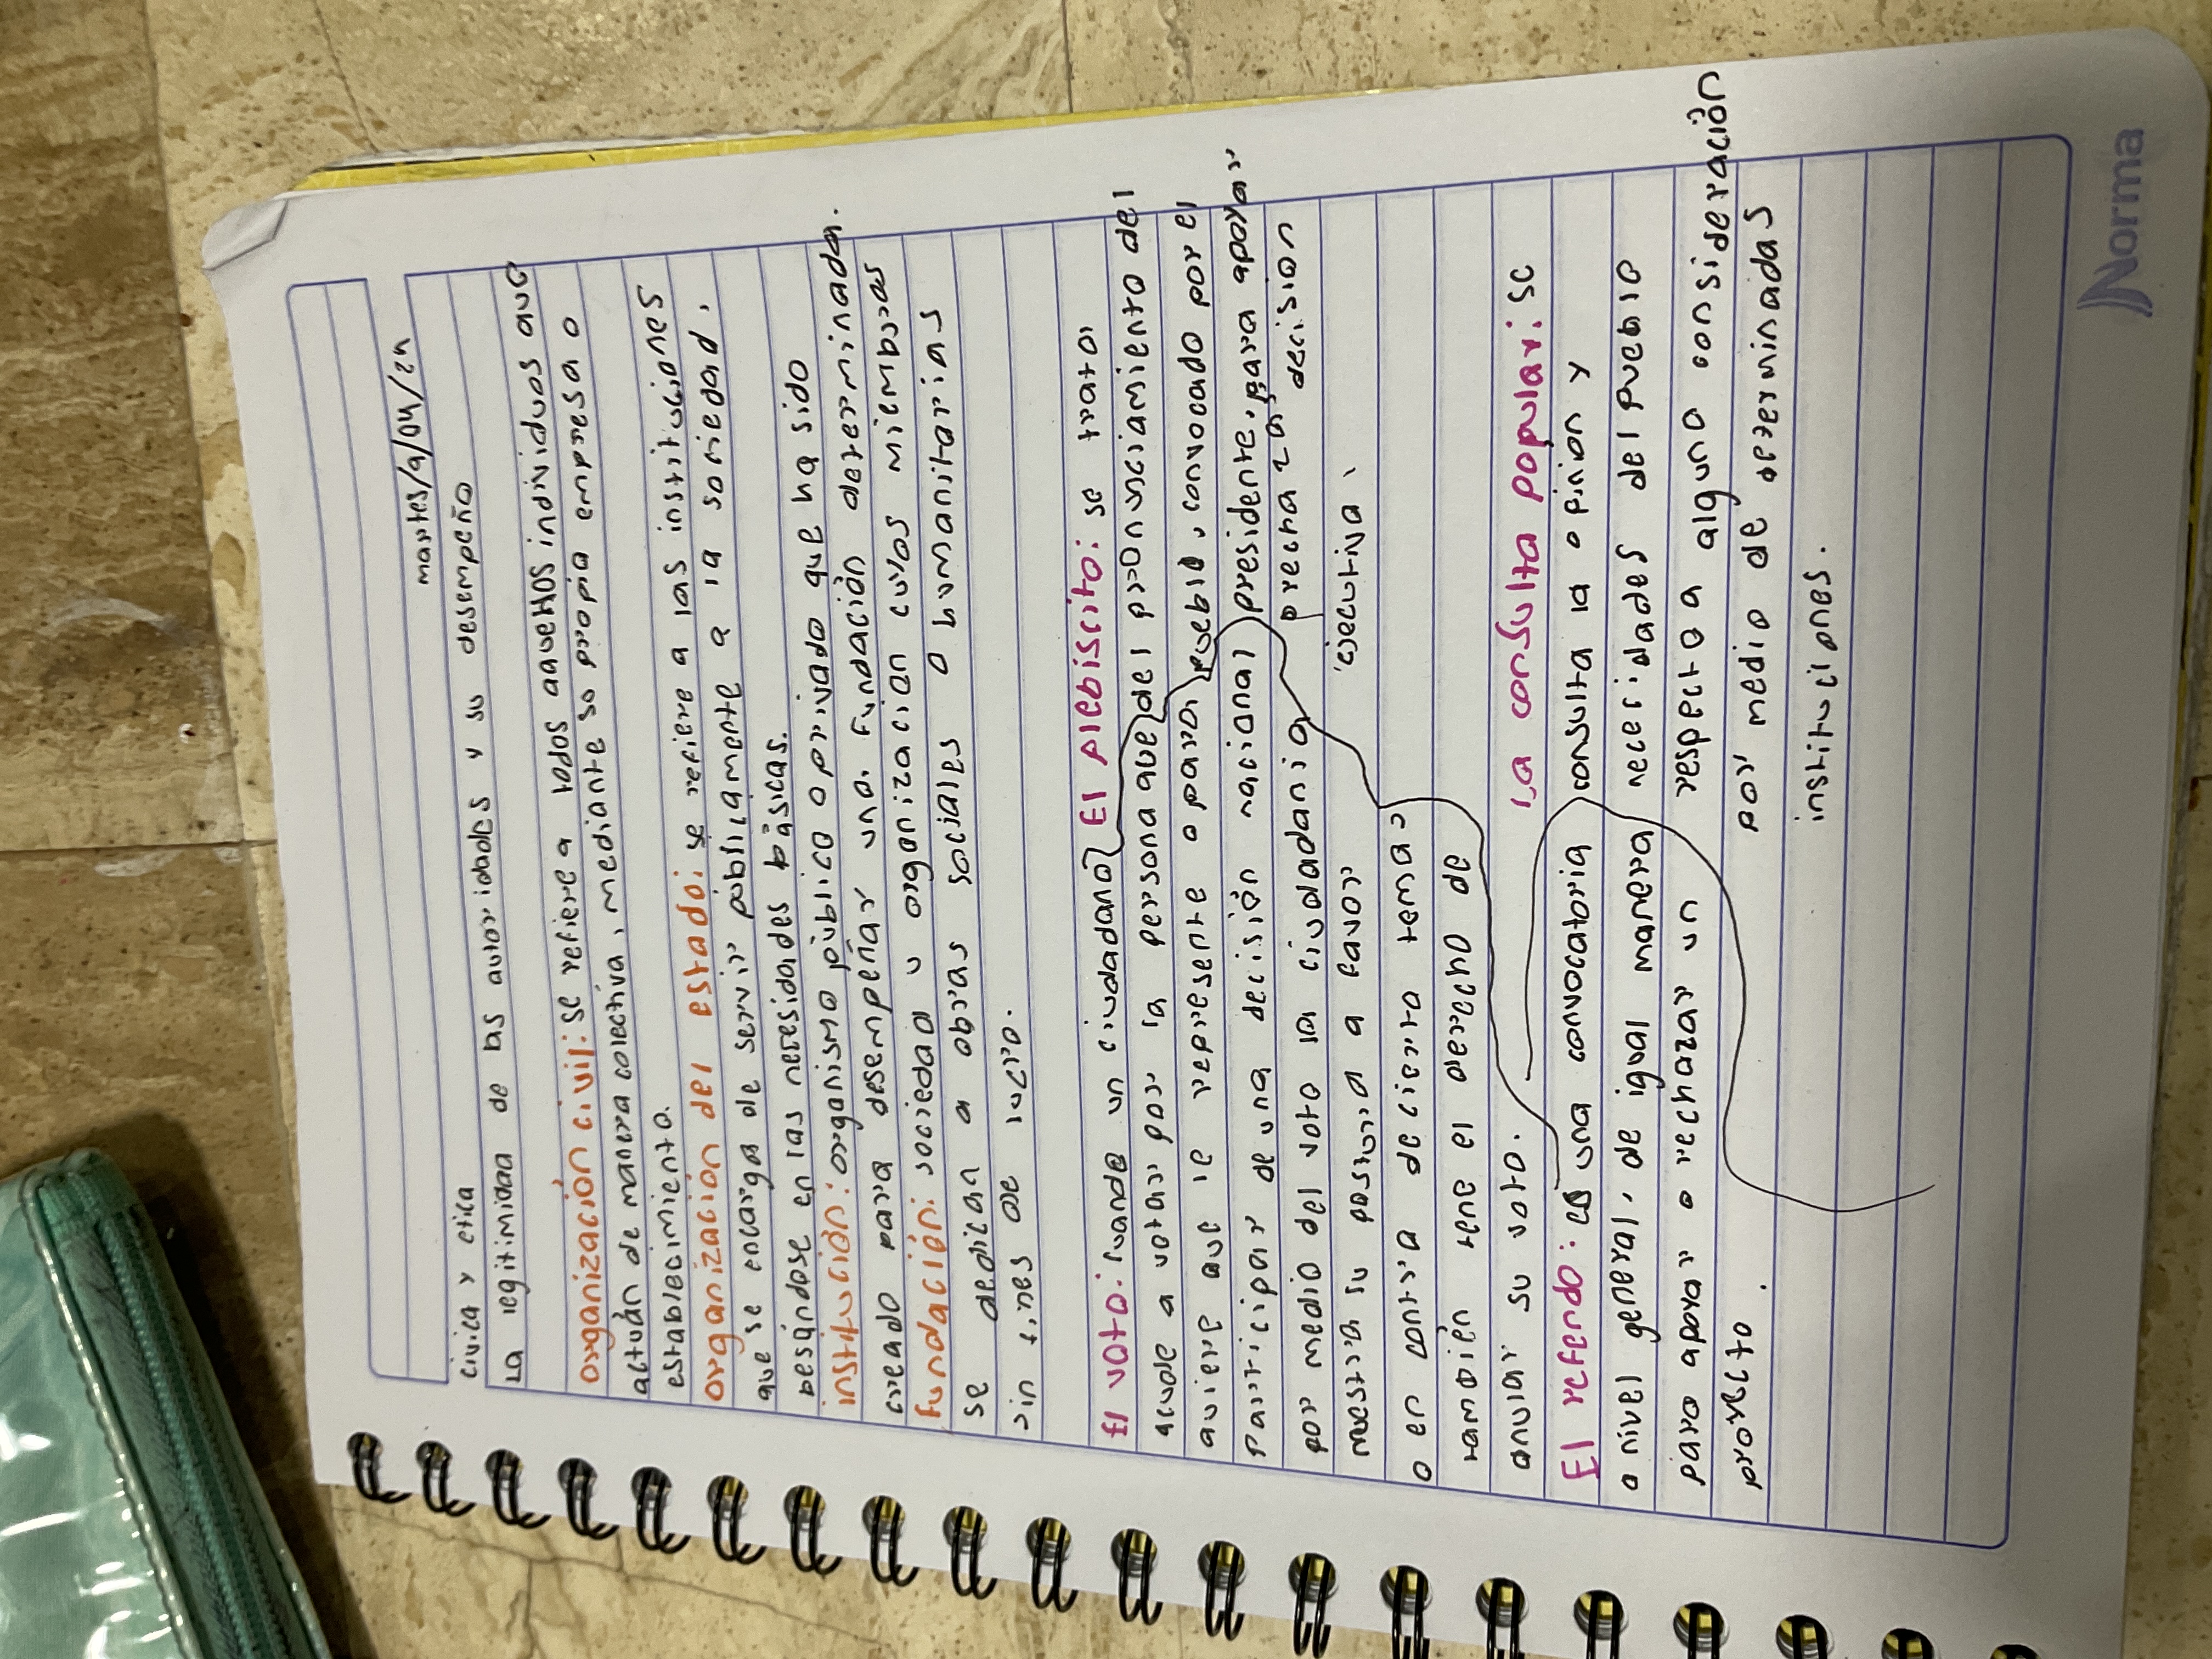 martes/9/04/24
civica y etica
La legitimidad de las autoridades y su desempeño
organización civil: se refiere a todos aquellos individuos que
actuán de manera colectiva, mediante so propia empresa o
establecimiento.
organización del estado: se refiere a las instituciones
que se encarga de servir públicamente a la sociedad,
besándose en las nesesidades básicas.
institución: organismo público o privado que ha sido
creado para desempeñar una fundación determinada.
fundación: sociedad u organización cuyos miembros
se dedican a obras sociales o humanitarias
sin fines de lucro.
El voto: cuando un ciudadano
acude a votar por la persona que
quiere que le represente o para
participar de una decisión nacional
por medio del voto la ciudadania
muestra su postura a favor
o en contra de cierto tema
también puede la ave
anular su voto.
El refendo: es una convocatoria
a nivel general, de igual manera
para apoyar o rechazar un
proyecto.
El plebiscito: se trata
del pronunciamiento del
pueblo, convocado por el
presidente, para apoyar
o rechazar decision
ejecutiva.
La consulta popular: se
consulta la opinion y
necesidades del pueblo
respecto a alguna consideración
por medio de determinadas
instituciones.
Norma